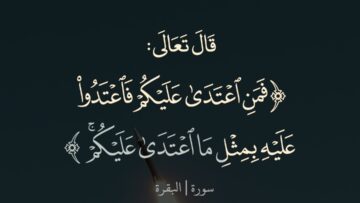 قَالَ تَعَالَى:
﴿فَمَنِ ٱعْتَدَىٰ عَلَيْكُمْ فَٱعْتَدُوا۟
عَلَيْهِ بِمِثْلِ مَا ٱعْتَدَىٰ عَلَيْكُمْ ۚ﴾
سورة | البقرة